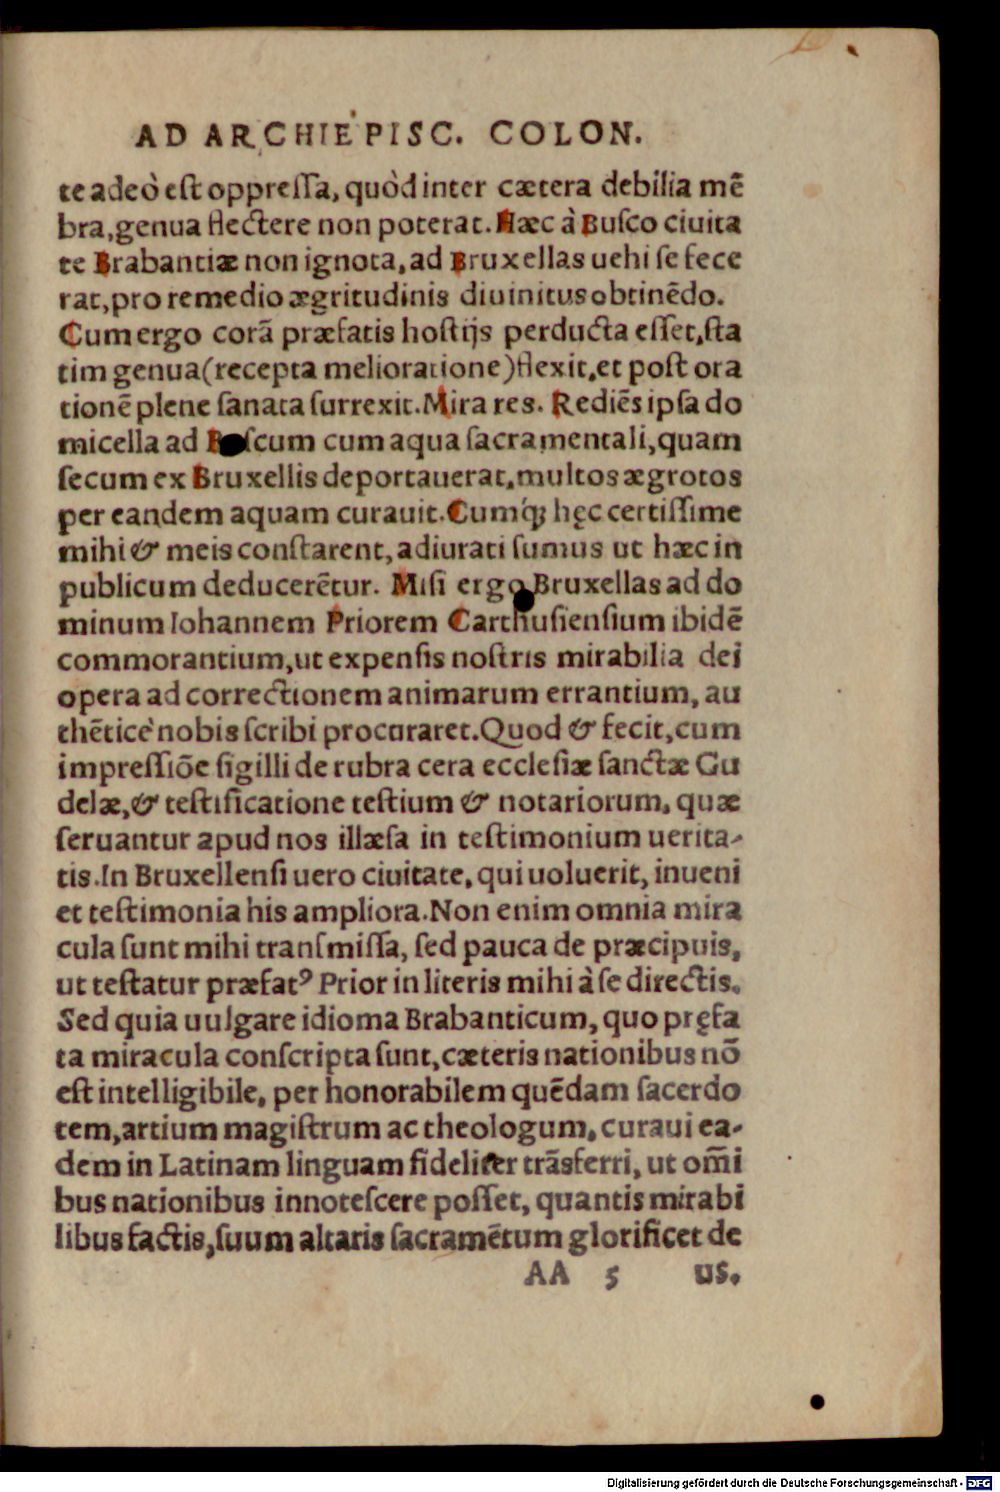 AD ARCHIEPISC. COLON.
te adeò est oppressa, quòd inter cætera debilia mē
bra, genua flectere non poterat. Hæc à Busco ciuita
te Brabantiæ non ignota, ad Bruxellas uehi se fece
rat, pro remedio ægritudinis diuinitus obtinēdo.
Cum ergo corā præfatis hostijs perducta esset, sta
tim genua (recepta melioratione) flexit, et post ora
tionē plene sanata surrexit. Mira res. Rediēs ipsa do
micella ad Buscum cum aqua sacramentali, quam
secum ex Bruxellis deportauerat, multos ægrotos
per eandem aquam curauit. Cumq́; hęc certissime
mihi & meis constarent, adiurati sumus ut hæc in
publicum deducerētur. Misi ergo Bruxellas ad do
minum Iohannem Priorem Carthusiensium ibidē
commorantium, ut expensis nostris mirabilia dei
opera ad correctionem animarum errantium, au
thēticè nobis scribi procuraret. Quod & fecit, cum
impressiōe sigilli de rubra cera ecclesiæ sanctæ Gu
delæ, & testificatione testium & notariorum, quæ
seruantur apud nos illæsa in testimonium uerita-
tis. In Bruxellensi uero ciuitate, qui uoluerit, inueni
et testimonia his ampliora. Non enim omnia mira
cula sunt mihi transmissa, sed pauca de præcipuis,
ut testatur præfatꝰ Prior in literis mihi à se directis.
Sed quia uulgare idioma Brabanticum, quo pręfa
ta miracula conscripta sunt, cæteris nationibus nō
est intelligibile, per honorabilem quēdam sacerdo
tem, artium magistrum ac theologum, curaui ea-
dem in Latinam linguam fideliter trāsferri, ut om̄i
bus nationibus innotescere posset, quantis mirabi
libus factis, suum altaris sacramētum glorificet de
AA 5 us.
Digitalisierung gefördert durch die Deutsche Forschungsgemeinschaft - DFG